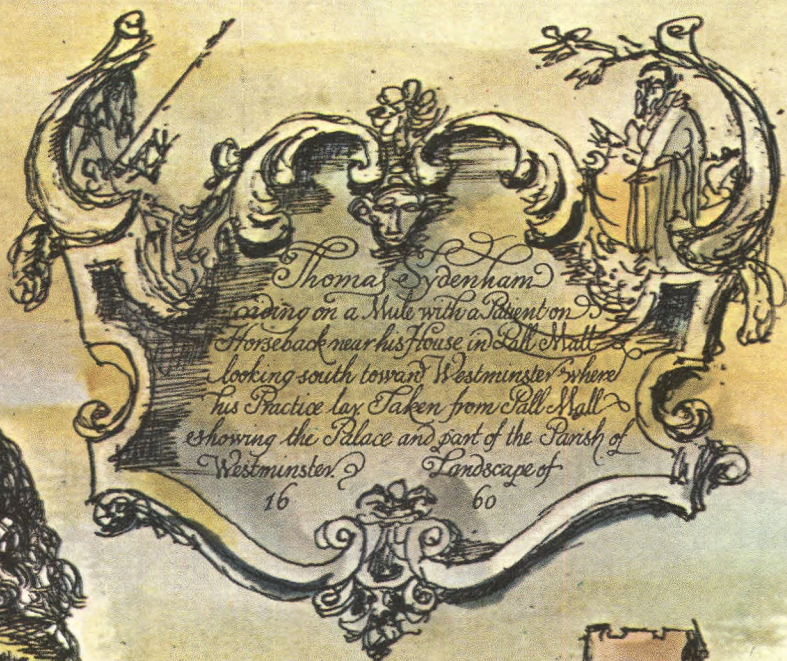 Thomas Sydenham
riding on a Mule with a Patient on
Horseback near his House in Pall Mall
looking south toward Westminster where
his Practice lay. Taken from Pall Mall
eshowing the Palace and part of the Parish of
Westminster. Landscape of
16 60